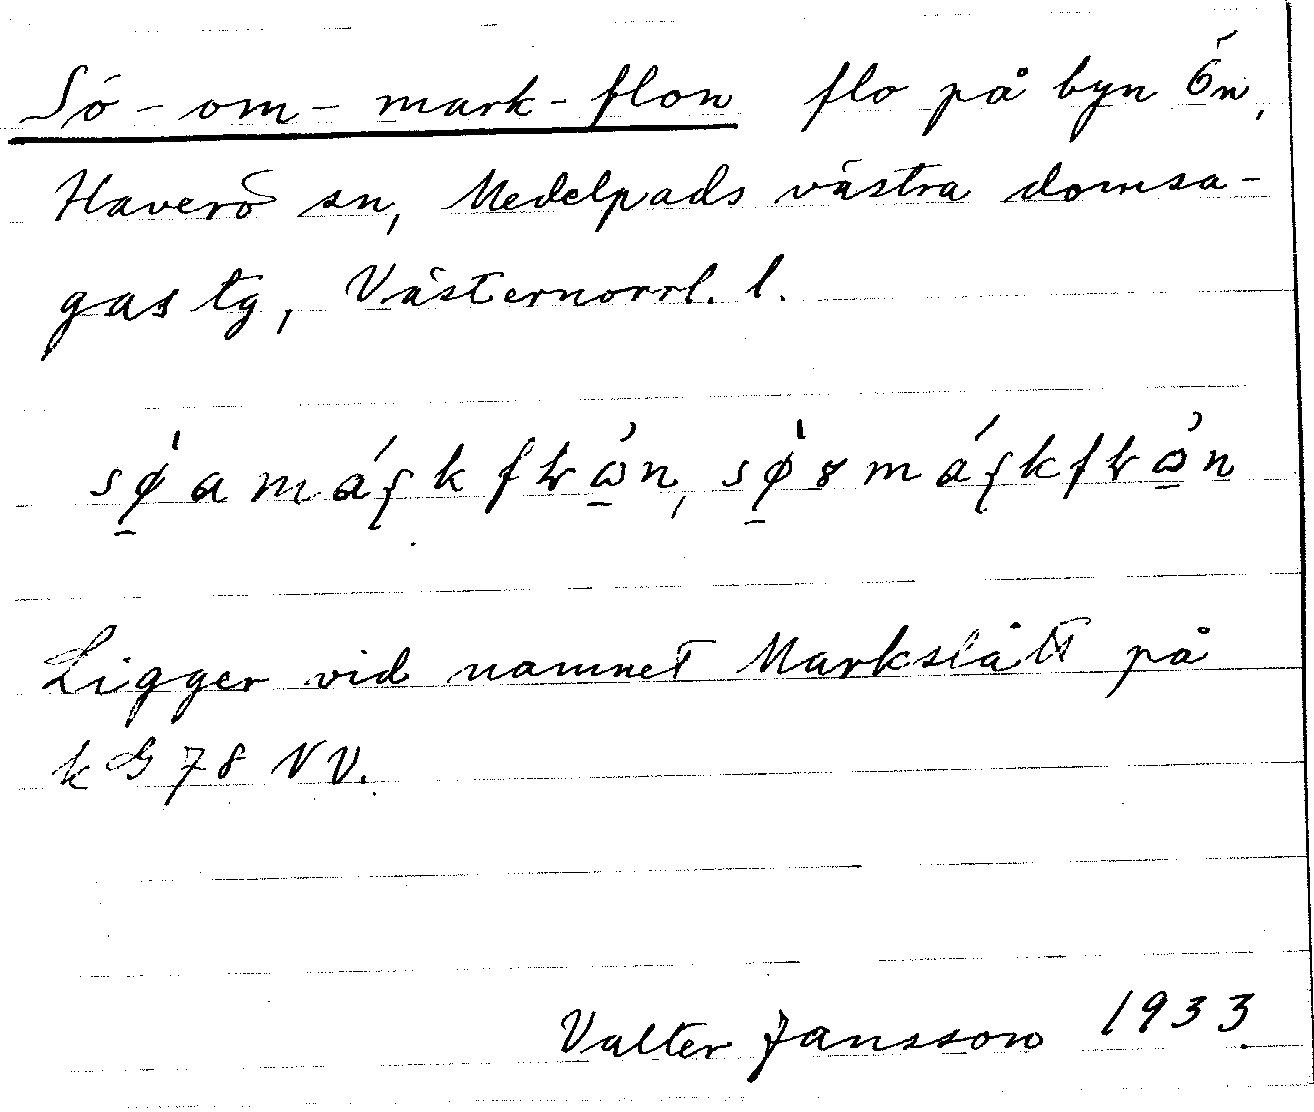 Sö-om-mark-flon flo på byn Ön,
Haverö sn, Medelpads västra domsa-
gas tg, Västernorrl. l.
Ligger vid namnet Markslått på
kG 78 NV.
Valter Jansson 1933.